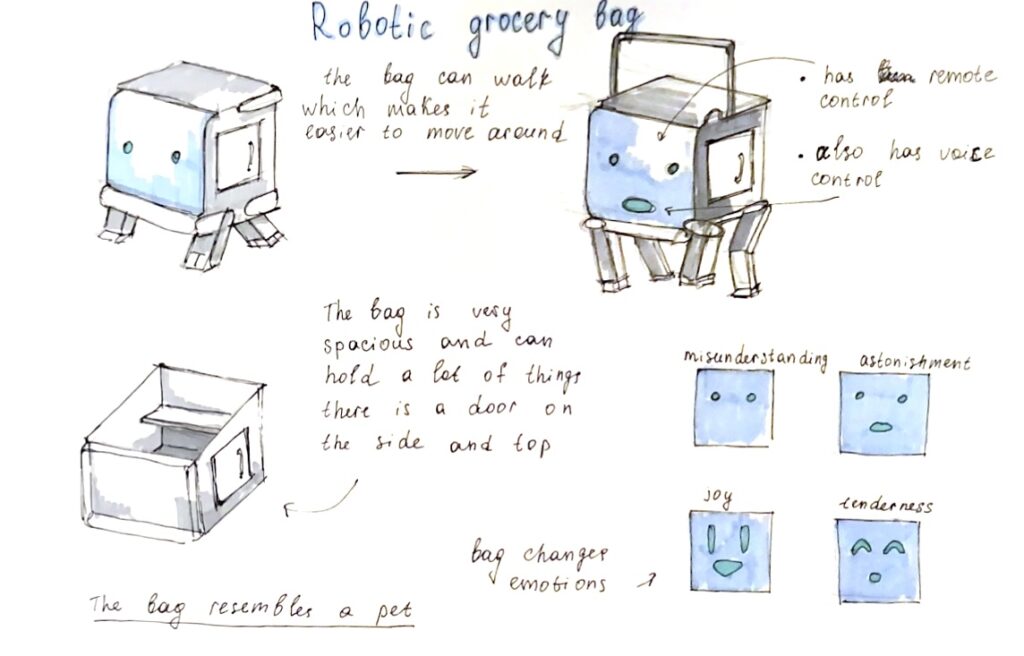 Robotic grocery bag
the bag can walk
which makes it
easier to move around
• has remote
control
• also has voice
control
The bag is very
spacious and can
hold a lot of things
there is a door on
the side and top
misunderstanding
astonishment
joy
tenderness
bag changes
emotions
The bag resembles a pet